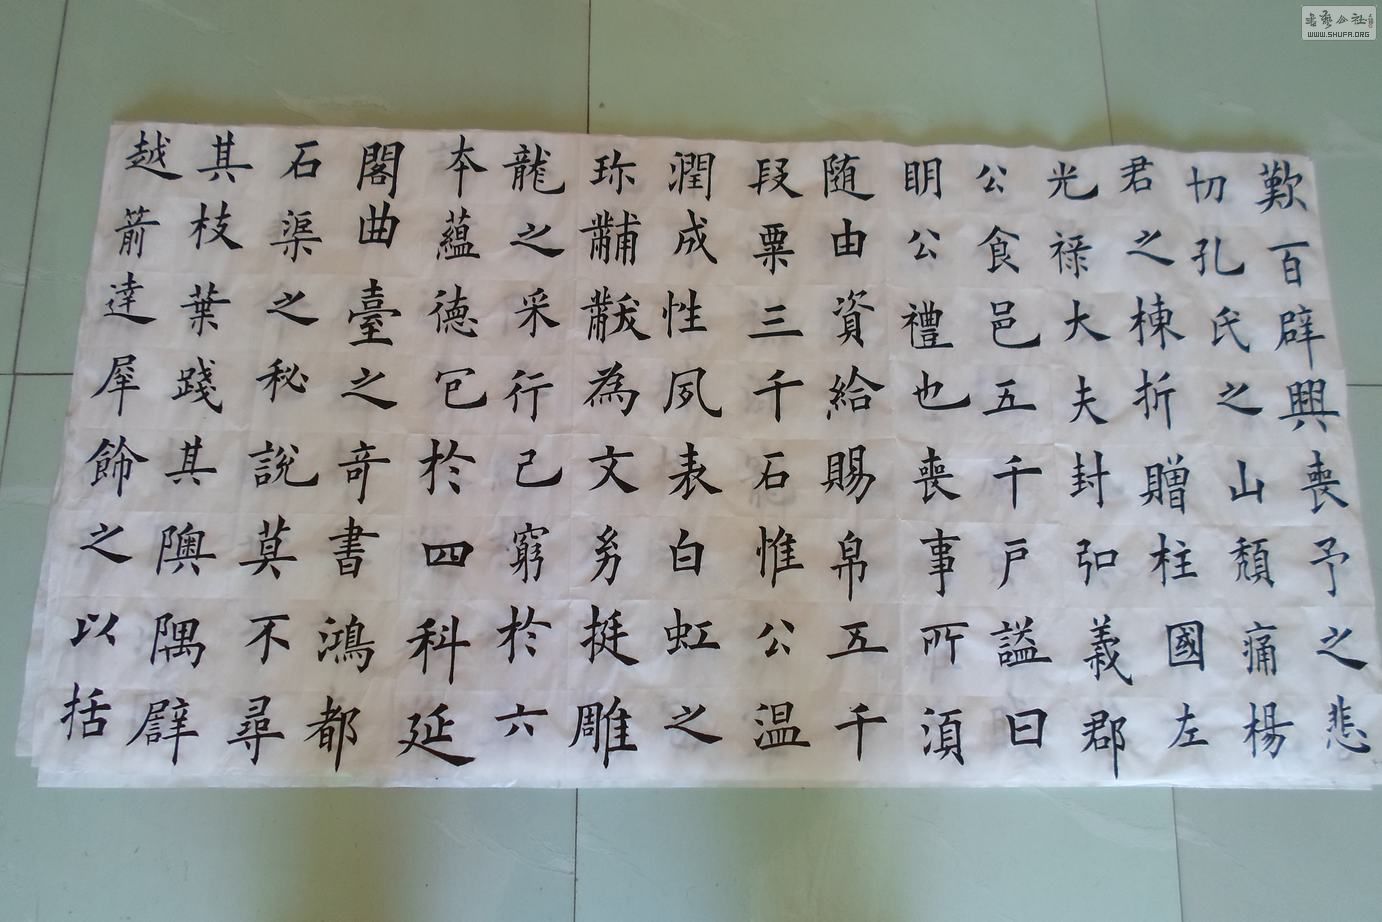 歎百辟興喪予之悲
切孔氏之山頽痛楊
君之棟折贈柱國左
光禄大夫封弘義郡
公食邑五千戶謚曰
明公禮也喪事所須
随由資給賜帛五千
段粟三千石惟公温
潤成性夙表白虹之
珎黼黻為文㓜挺雕
龍之采行己窮於六
夲蘊德包於四科延
閣曲臺之竒書鴻都
石渠之秘說莫不尋
其枝葉踐其隩隅譬
越箭達犀飾之以括
書藝公社
WWW.SHUFA.ORG